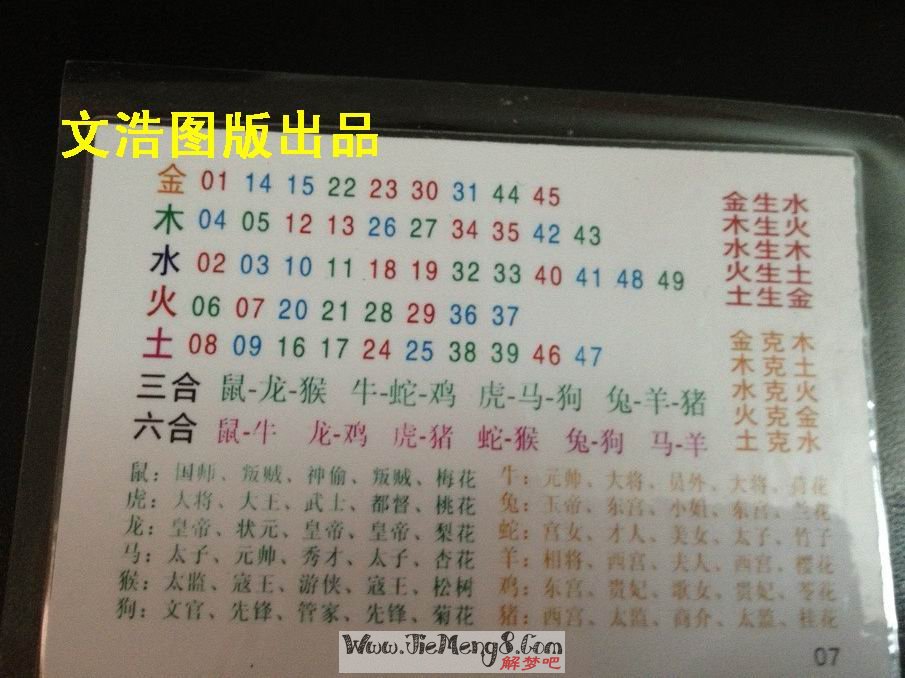 文浩图版出品
金 01 14 15 22 23 30 31 44 45
木 04 05 12 13 26 27 34 35 42 43
水 02 03 10 11 18 19 32 33 40 41 48 49
火 06 07 20 21 28 29 36 37
土 08 09 16 17 24 25 38 39 46 47
金生水
木生火
水生木
火生土
土生金
金克木
木克土
水克火
火克金
土克水
三合 鼠-龙-猴 牛-蛇-鸡 虎-马-狗 兔-羊-猪
六合 鼠-牛 龙-鸡 虎-猪 蛇-猴 兔-狗 马-羊
鼠：国师、叛贼、神偷、叛贼、梅花
虎：大将、大王、武士、都督、桃花
龙：皇帝、状元、皇帝、皇帝、梨花
马：太子、元帅、秀才、太子、杏花
猴：太监、寇王、游侠、寇王、松树
狗：文官、先锋、管家、先锋、菊花
牛：元帅、大将、员外、大将、荷花
兔：玉帝、东宫、小姐、东宫、兰花
蛇：宫女、才人、美女、太子、竹子
羊：相将、西宫、夫人、西宫、樱花
鸡：东宫、贵妃、歌女、贵妃、苓花
猪：西宫、太监、商介、太监、桂花
Www.JieMeng8.Com
解梦吧
07